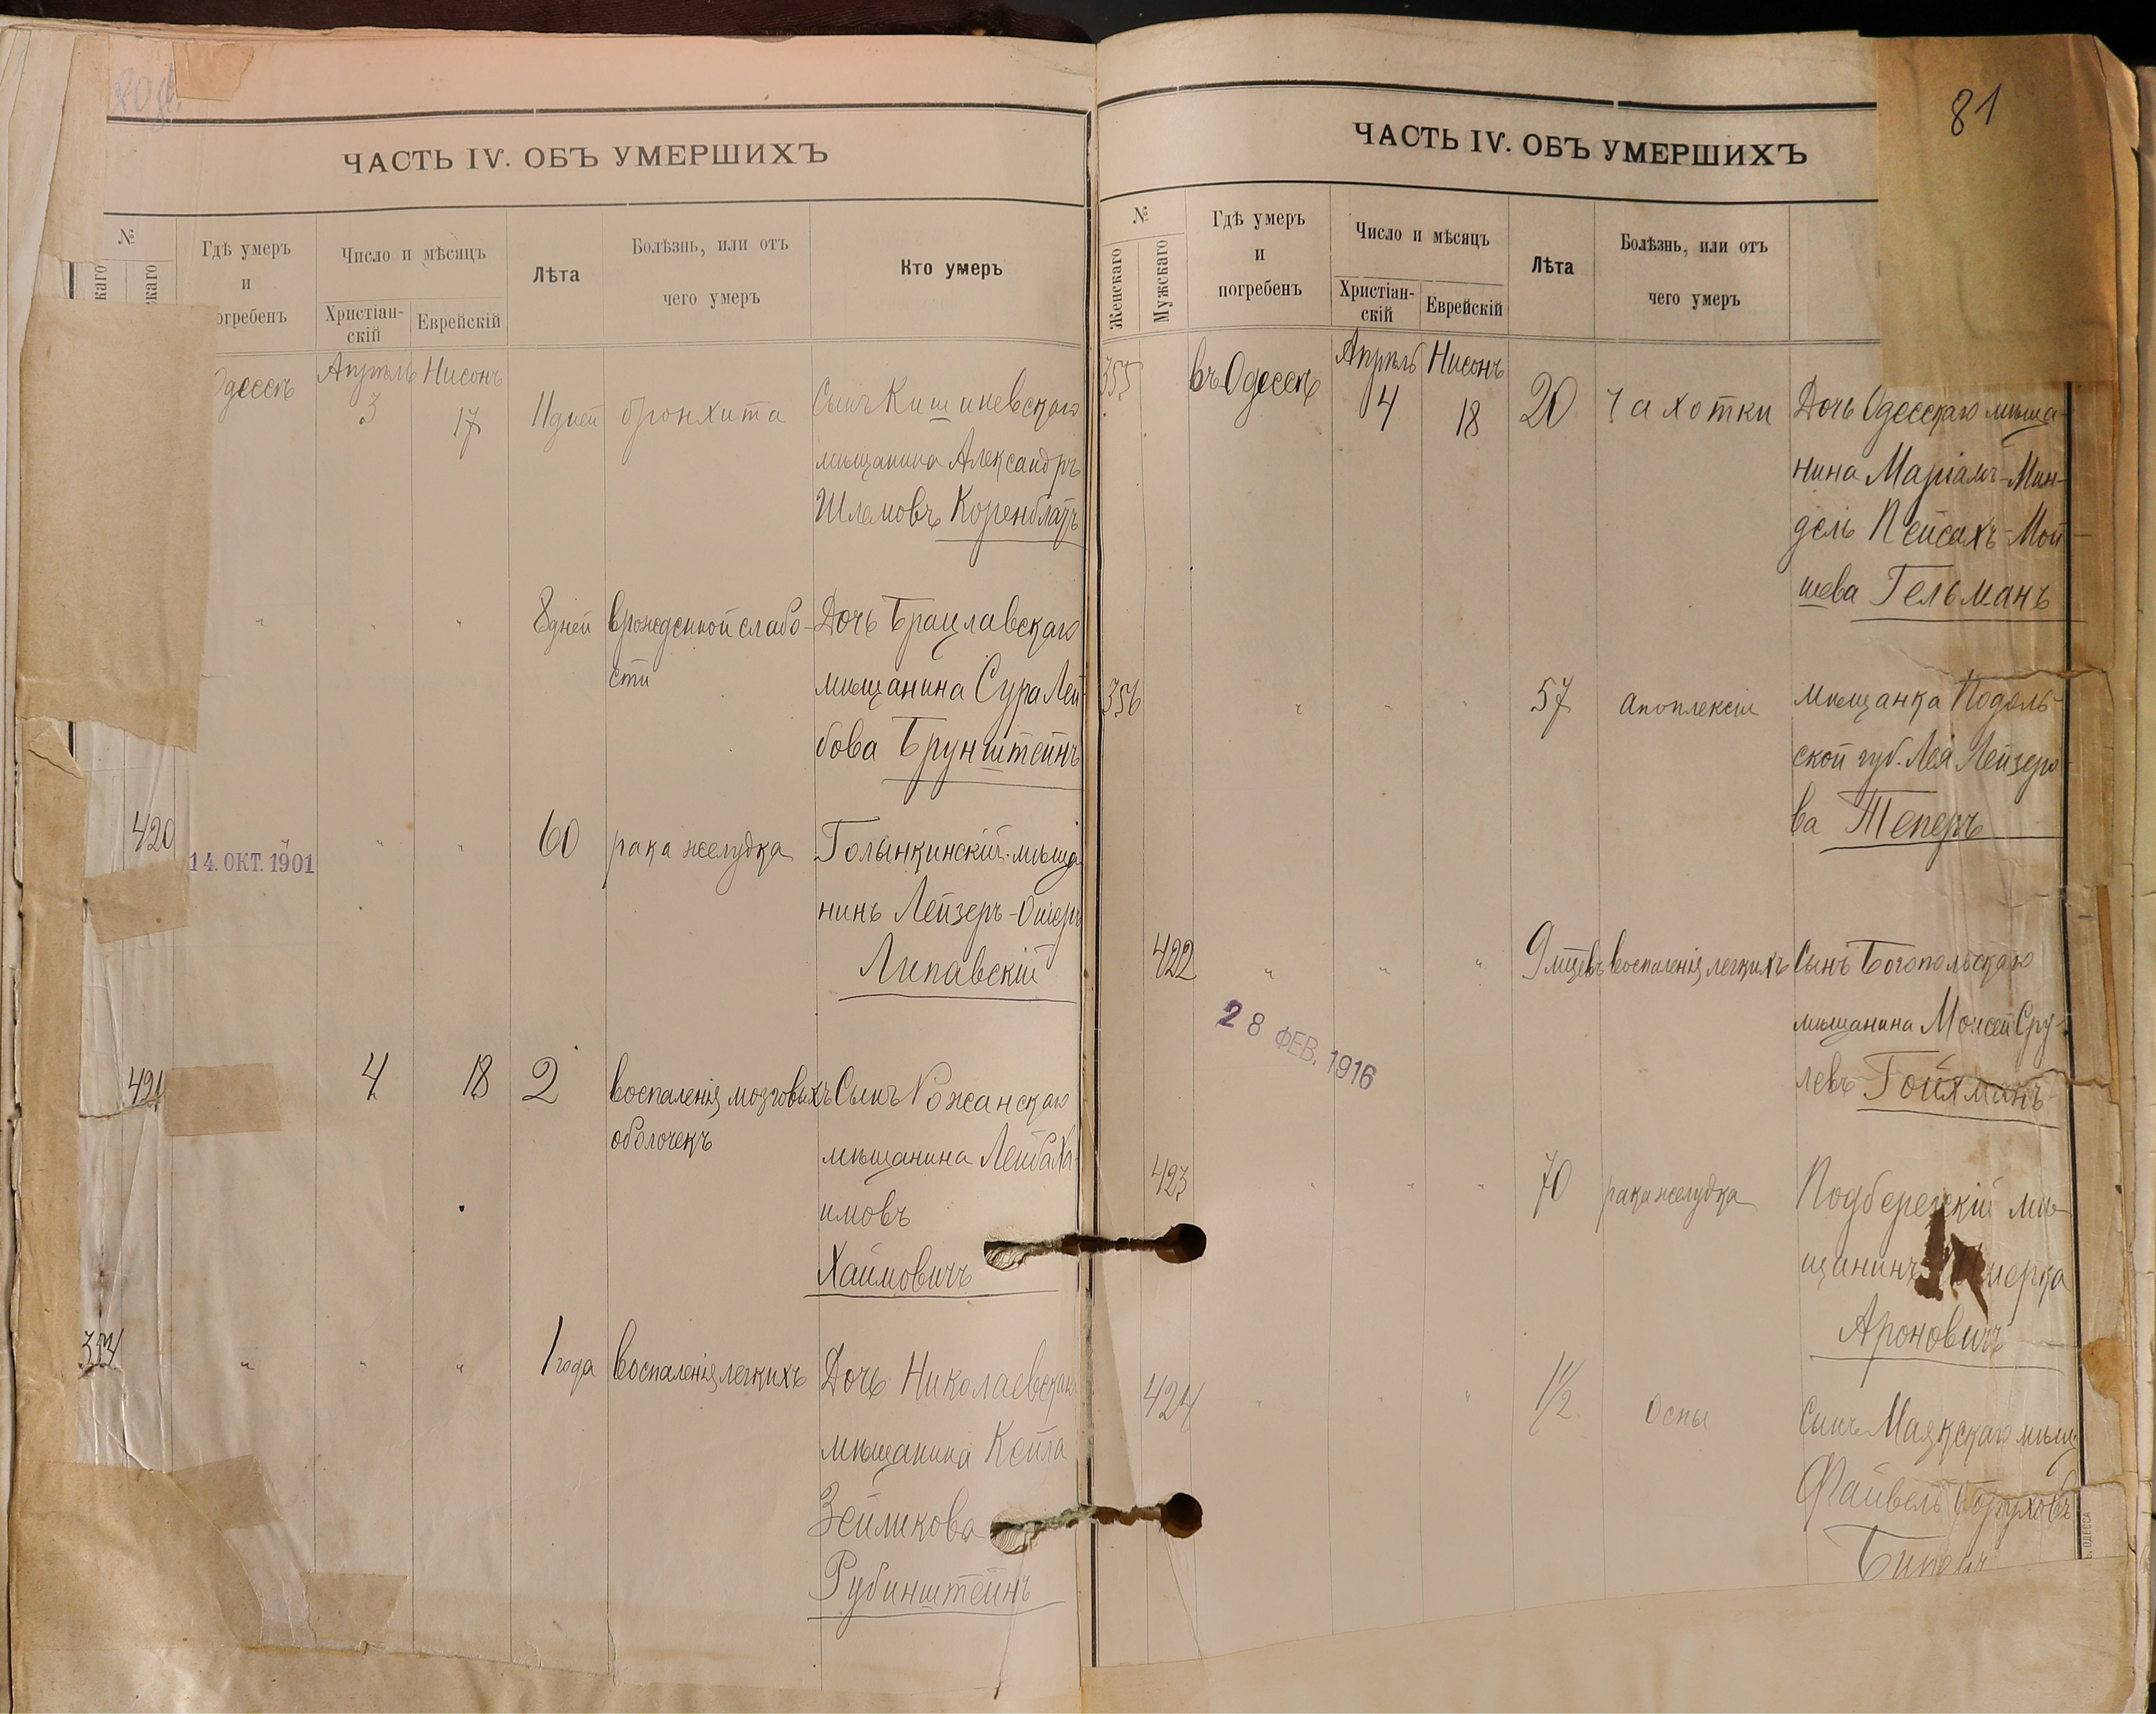 80 об.
ЧАСТЬ IV. ОБЪ УМЕРШИХЪ
№
скаго
скаго
Гдѣ умеръ
и
погребенъ
Число и мѣсяцъ
Христіан-
скій
Еврейскій
Лѣта
Болѣзнь, или отъ
чего умеръ
Кто умеръ
Одессѣ
Апрѣль
3
Нисонъ
17
11 дней
бронхита
Сынъ Кишиневскаго
мѣщанина Александръ
Шлемовъ Коренблатъ
" " "
8 дней
врожденной слабо-
сти
Дочь Брацлавскаго
мѣщанина Сура Лей
бова Брунштейнъ
420
" " "
14. ОКТ. 1901
60
рака желудка
Голынкинскій мѣща
нинъ Лейзеръ-Ошеръ
Липавскій
421
4
18
2
воспаленія мозговыхъ
оболочекъ
Сынъ Рожанскаго
мѣщанина Лейба Ха-
имовъ
Хаимовичъ
354
" " "
1 года
воспаленія легкихъ
Дочь Николаевскаго
мѣщанина Кейла
Зейликова
Рубинштейнъ
81
ЧАСТЬ IV. ОБЪ УМЕРШИХЪ
№
Женскаго
Мужскаго
Гдѣ умеръ
и
погребенъ
Число и мѣсяцъ
Христіан-
скій
Еврейскій
Лѣта
Болѣзнь, или отъ
чего умеръ
355
въ Одессѣ
Апрѣль
4
Нисонъ
18
20
Чахотки
Дочь Одесскаго мѣща-
нина Маріамъ-Мин-
дель Пейсахъ-Мой-
шева Гельманъ
356
" " "
57
апоплексіи
мѣщанка Подоль-
ской губ. Лея Лейзеро-
ва Теперъ
422
" " "
28 ФЕВ. 1916
9 мцевъ
воспаленія легкихъ
Сынъ Богопольскаго
мѣщанина Моисей Сру-
левъ Гойхманъ
423
" " "
70
рака желудка
Подберезскій мѣ-
щанинъ
Ароновичъ
424
" " "
1 1/2
оспы
Сынъ Маякскаго мѣщ
Файвель Борухов
ОДЕССА